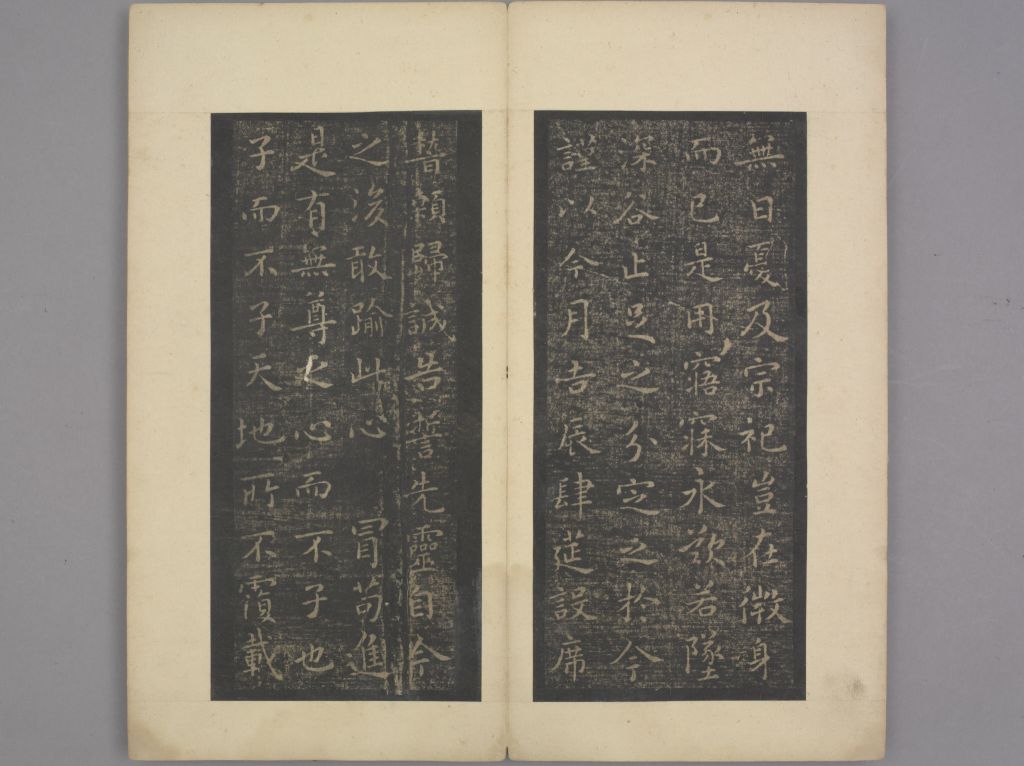 無日憂及宗祀豈在微身
而已是用寤寐永歎若墜
深谷止足之分定之於今
謹以今月吉辰肆筵設席
顙歸誠告誓先靈自今
之後敢踰此心 冒苟進
是有無尊之心而不子也
子而不子天地所不覆載